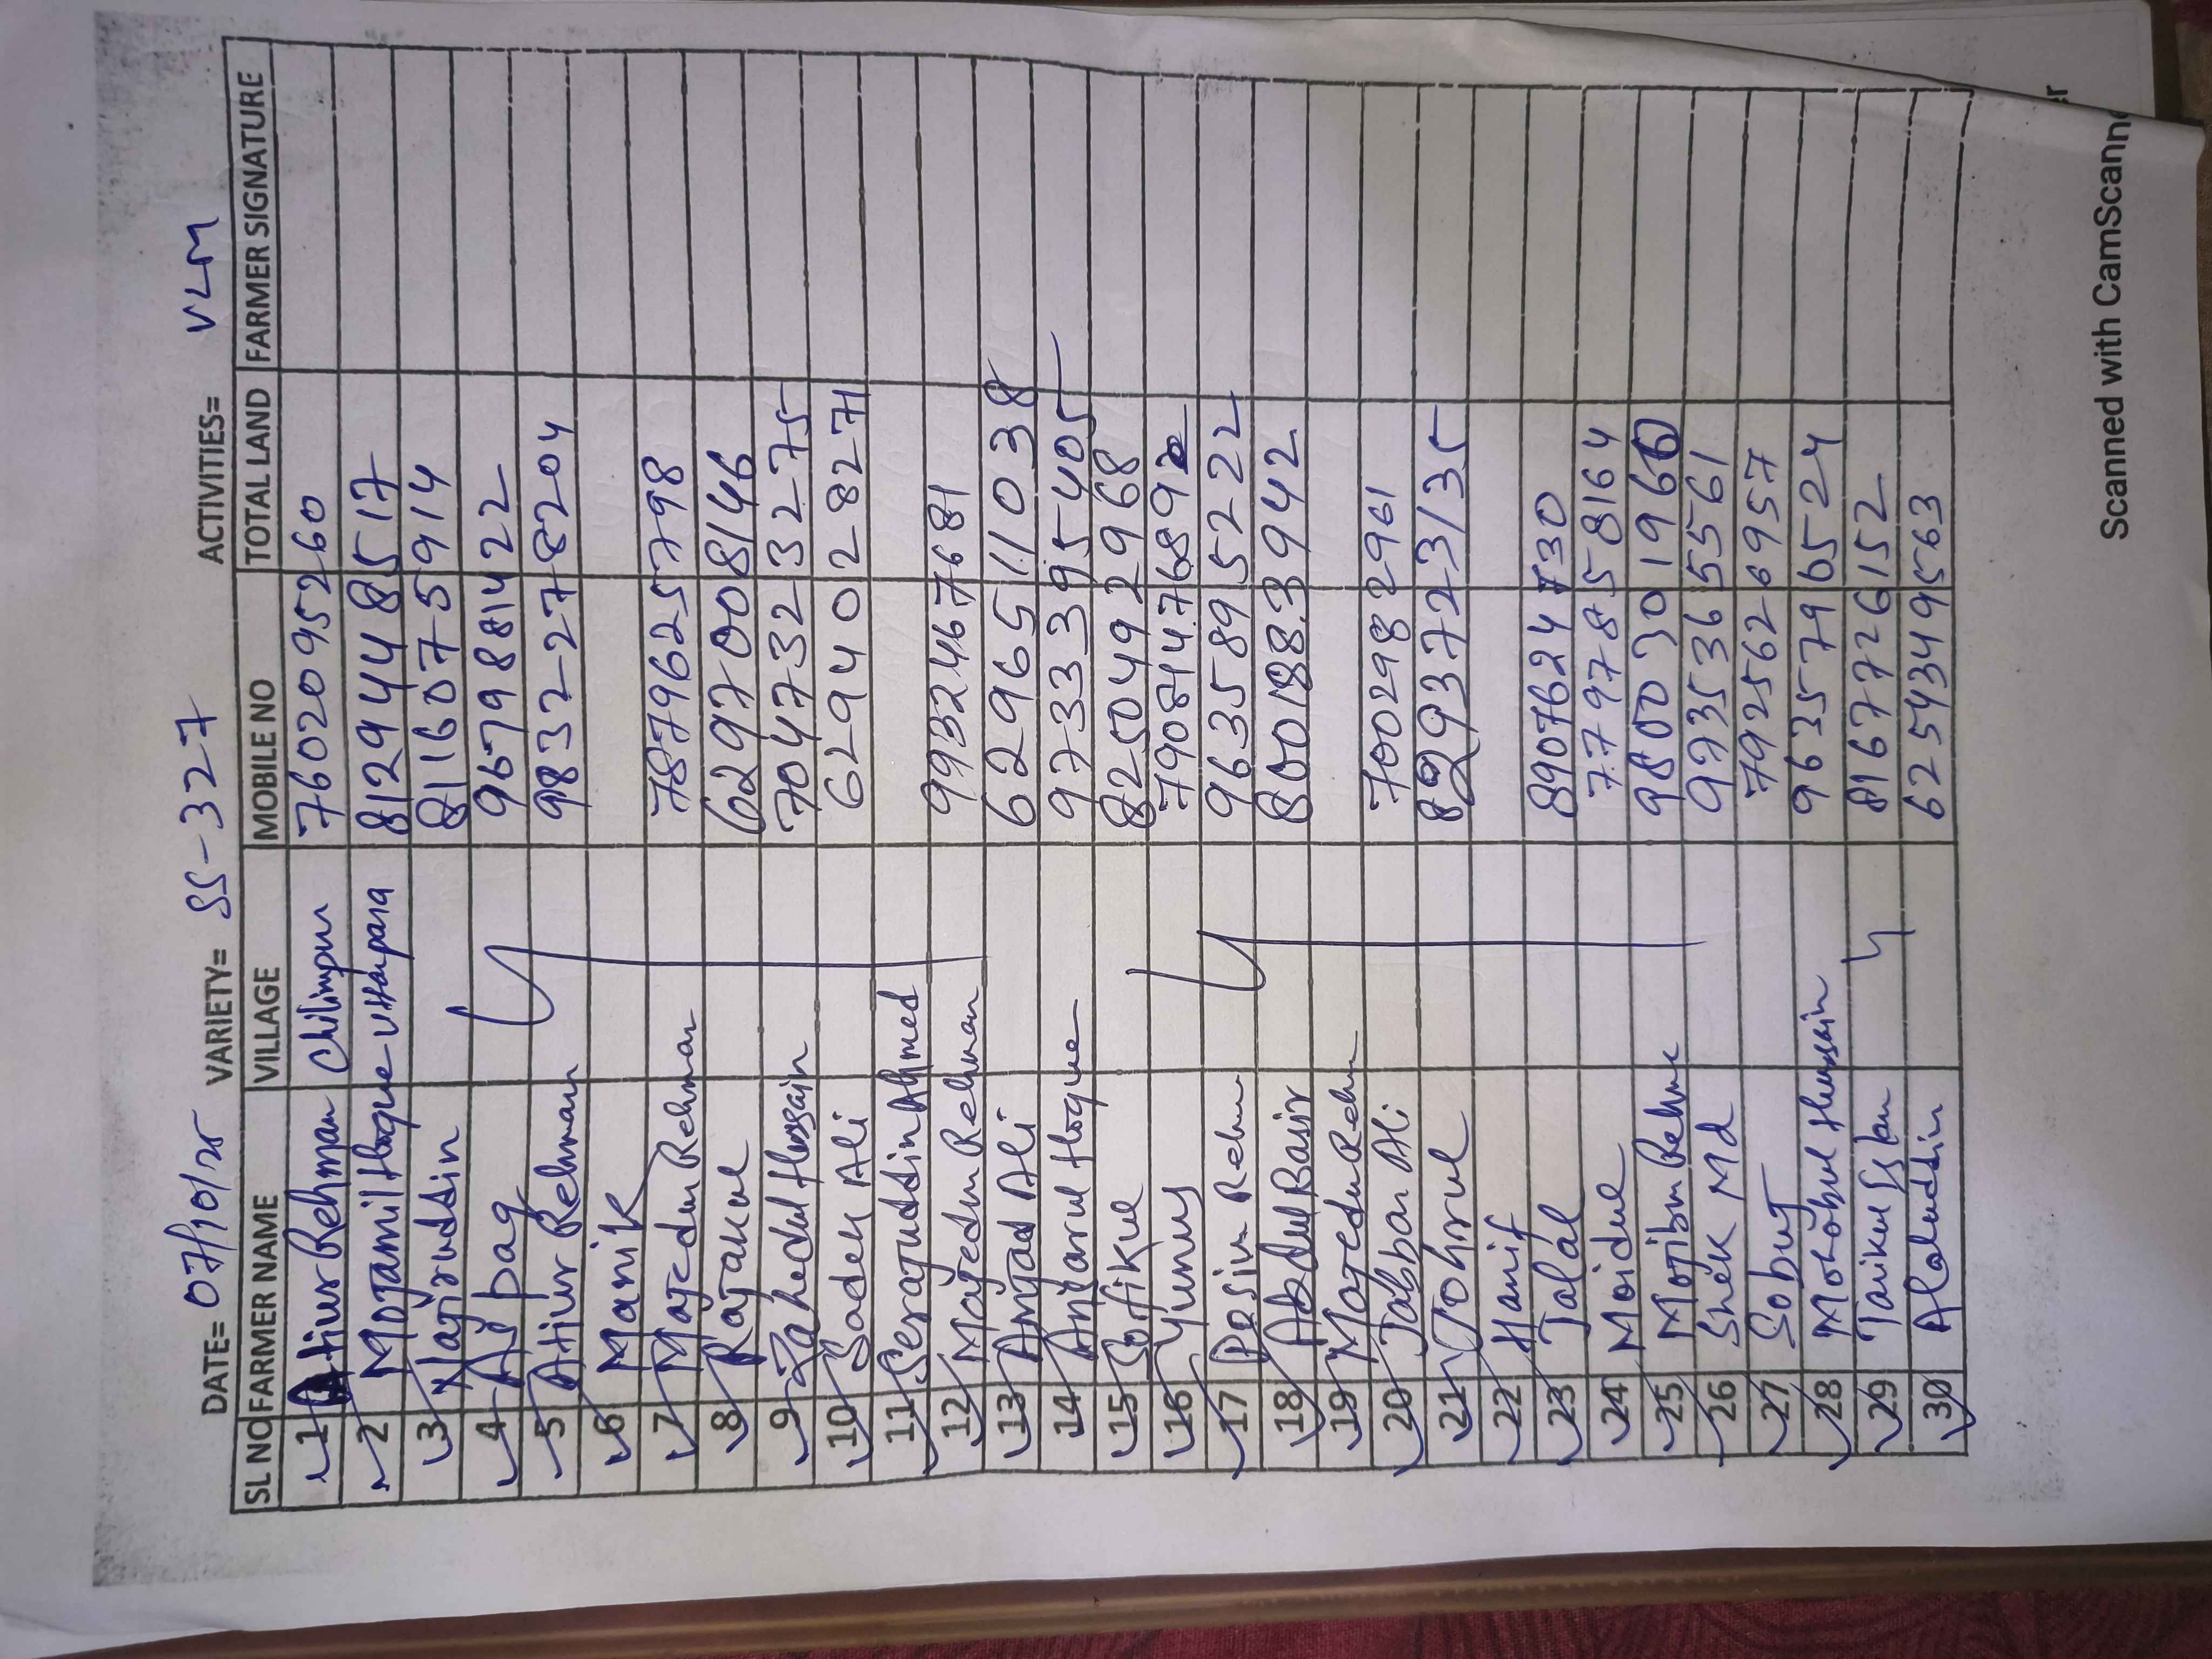 DATE= 07/10/25 VARIETY= SS-327 ACTIVITIES= VLM
SL NO FARMER NAME VILLAGE MOBILE NO TOTAL LAND FARMER SIGNATURE
1 Atiur Rehman Chilimpur 7602095260
2 Mojamil Hoque Uttarpara 8129448517
3 Najiruddin 8116075914
4 Ajpaq 9679881422
5 Atiur Rehman 9832278204
6 Manik
7 Majedur Rehman 7879625798
8 Rajakul 6297008146
9 Zahedul Hussain 7047323275
10 Sadek Ali 6294028271
11 Serajuddin Ahmed
12 Majedur Rehman 9932467681
13 Amjad Ali 6296511038
14 Anjarul Hoque 9733395405
15 Sofikul 8250492968
16 Yunus 79081476892
17 Rasiur Rehm 9635895222
18 Abdul Basir 8001883942
19 Majedur Rehm
20 Jabbar Ali 7002982961
21 Johrul 8293723135
22 Hanif
23 Jalal 8907624730
24 Moidul 7797858164
25 Mojibur Rehm 9800301966
26 Shek Md 9735365561
27 Sobuj 7925626957
28 Mokobul Hussain 9635796524
29 Tarikul Islam 8167726152
30 Alauddin 6254349563
Scanned with CamScanner